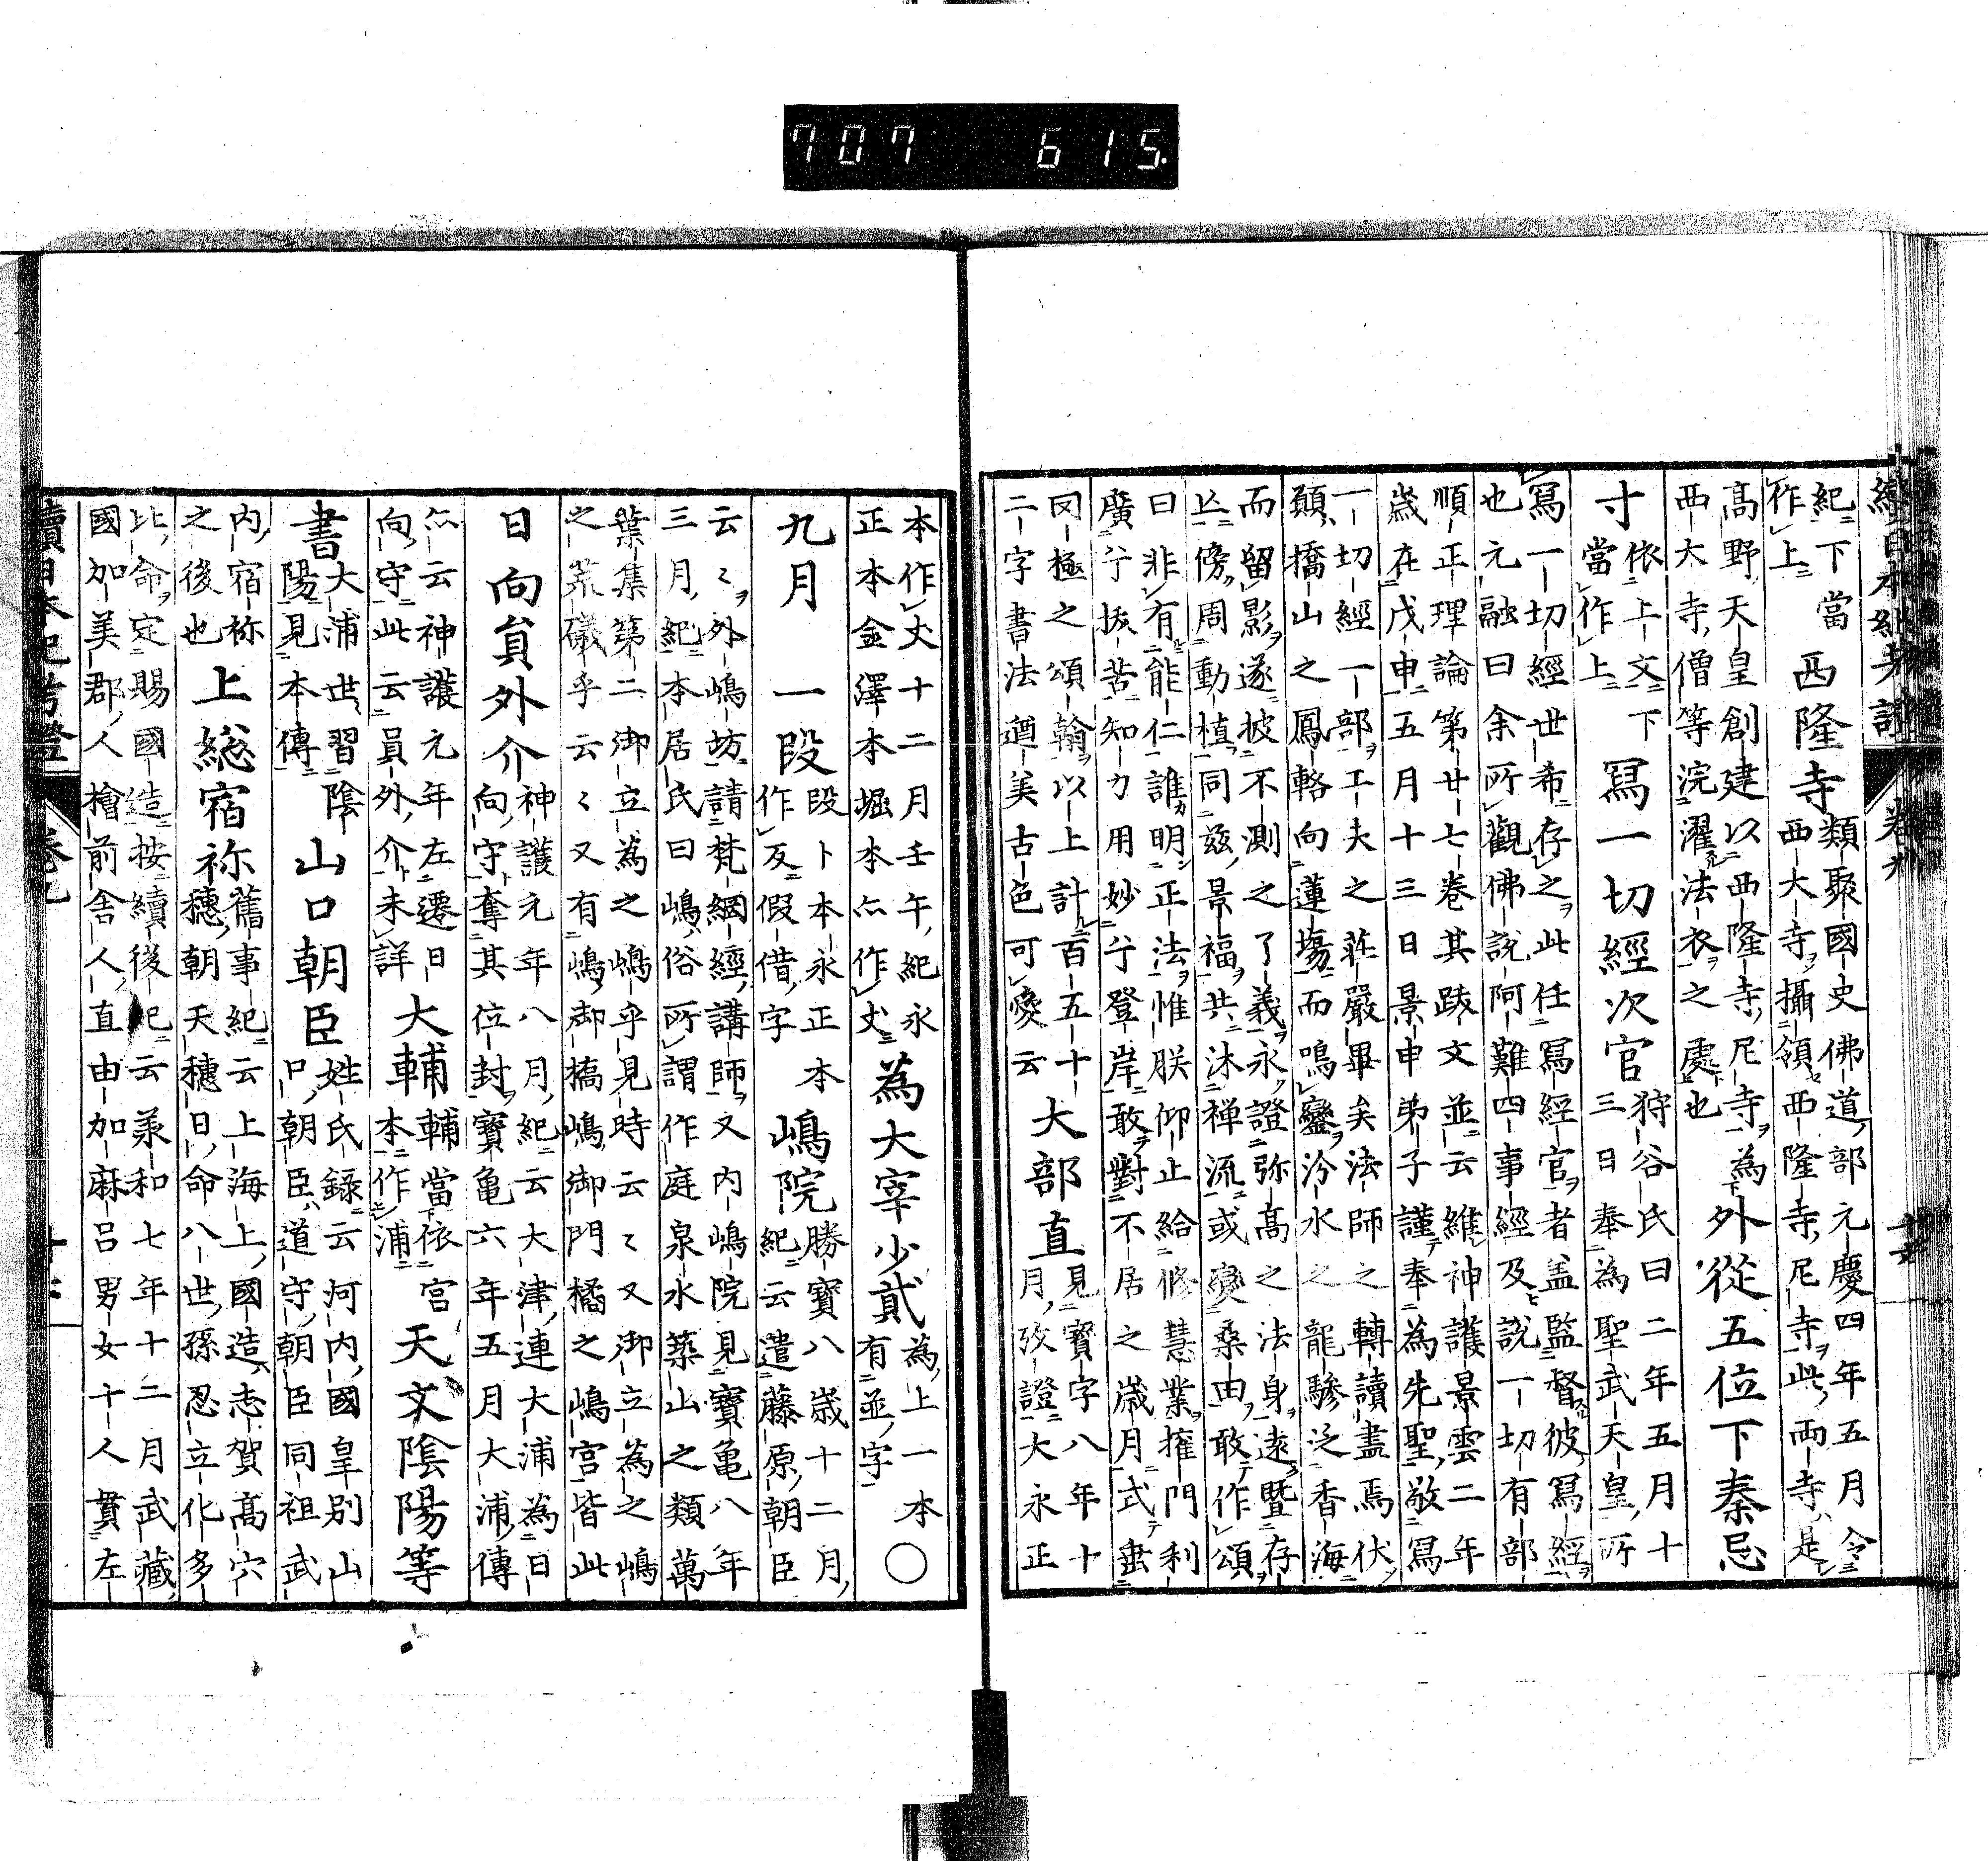 707 615.
續日本紀考證 卷九
紀下當作上 西隆寺 類聚國史佛道部元慶四年五月令西大寺攝領西隆寺尼寺此兩寺是
高野天皇創建以西隆寺尼寺為西大寺僧等浣濯法衣之處也 外從五位下秦忌
寸 依上文下當作上 寫一切經次官 狩谷氏曰二年五月十三日奉為聖武天皇所
寫一切經世希存之此任寫經官者盖監督彼寫經也元融曰余所觀佛說阿難四事經及說一切有部
順正理論第廿七卷其跋文並云維神護景雲二年歲在戊申五月十三日景申弟子謹奉為先聖敬寫
一切經一部工夫之莊嚴畢矣法師之轉讀盡焉伏願橋山之鳳輅向蓮場而鳴鑾汾水之龍驂泛香海
而留影遂披不測之了義永證弥高之法身遠暨存亡傍周動植同茲景福共沐禅流或變桑田敢作頌
曰非有能仁誰明正法惟朕仰止給修慧業權門利廣兮拔苦知力用妙兮登岸敢對不居之歲月式盡
罔極之頌翰以上計百五十二字書法遒美古色可愛云 大部直 見寶字八年十月攷證大永正
本作大十二月壬午紀永正本金澤本堀本亦作丈 為大宰少貳 為上一本有並字 〇
九月 一段 段卜本永正本作叚假借字 嶋院 勝寶八歲十二月紀云遣藤原朝臣
云々外嶋坊請梵網經講師又内嶋院見寶亀八年三月紀本居氏曰嶋俗所謂作庭泉水築山之類萬
葉集第二御立為之嶋乎見時云々又御立為之嶋之荒礒乎云々又有嶋御橋嶋御門橘之嶋宮皆此
日向員外介 神護元年八月紀云大津連大浦為日向守奪其位封寶亀六年五月大浦傳
亦云神護元年左遷日向守此云員外介未詳 大輔 輔當依宮本作浦 天文陰陽等
書 大浦世習陰陽見本傳 山口朝臣 姓氏録云河内國皇別山口朝臣道守朝臣同祖武
内宿祢之後也 上総宿祢 舊事紀云上海上國造志賀高穴穗朝天穗日命八世孫忍立化多
比命定賜國造按續後紀云兼和七年十二月武藏國加美郡人檜前舍人直由加麻呂男女十人貫左
續日本紀考證 卷九